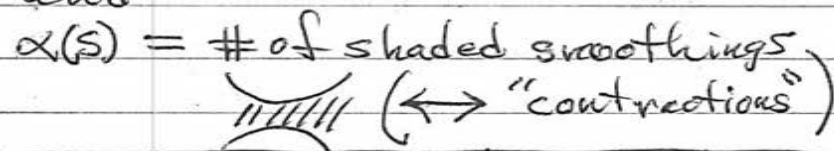 α(S) = # of shaded smoothings
(↔ "contractions")